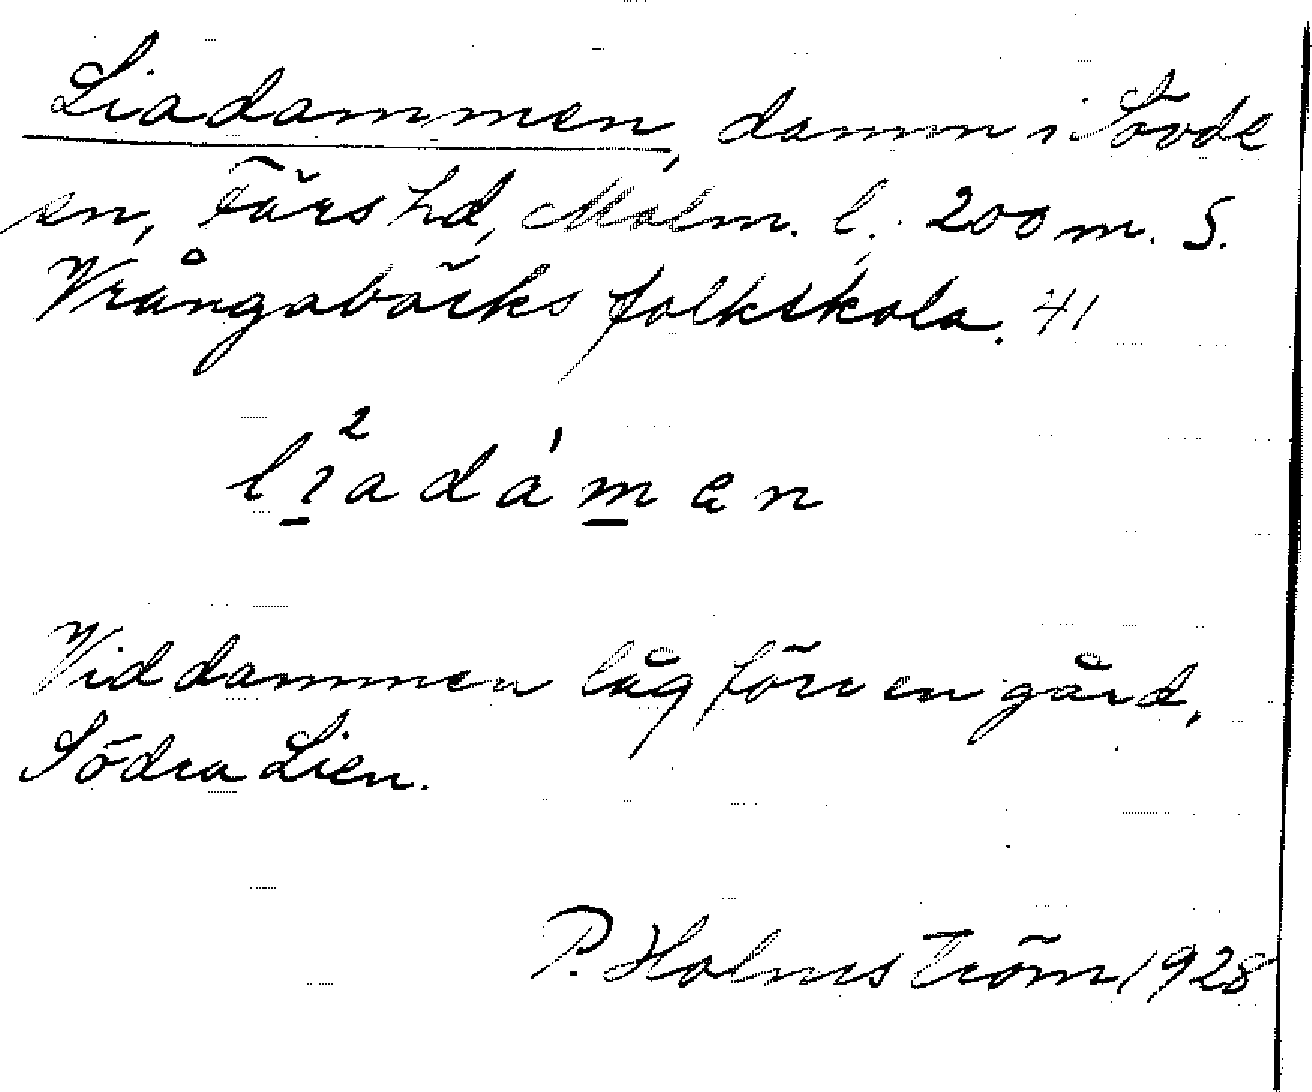 Liadammen, damm i Sövde
sn, Färs hd, Malm. l. 200 m. S.
Vrångabäcks folkskola. 41
lı²adám̲en
Vid dammen låg förr en gård,
Södra Lien.
P. Holmström 1928